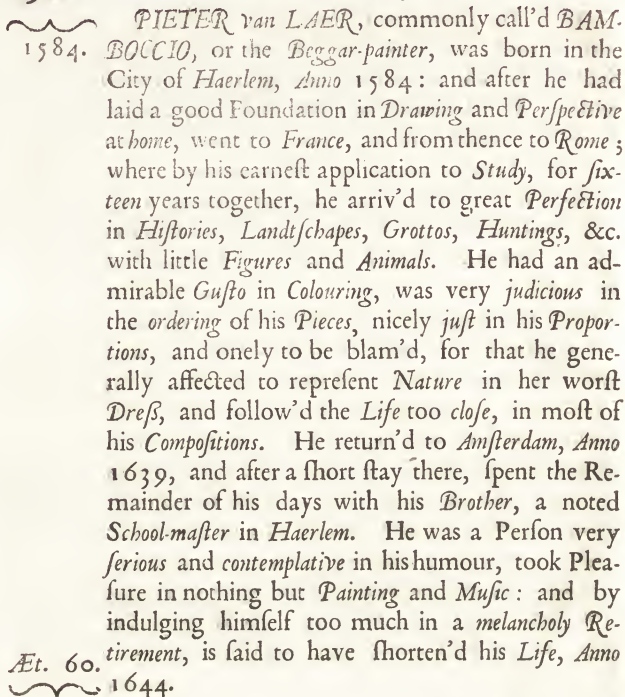 PIETER van LAER, commonly call'd BAM-
1584. BOCCIO, or the Beggar-painter, was born in the
City of Haerlem, Anno 1584: and after he had
laid a good Foundation in Drawing and Perſpective
at home, went to France, and from thence to Rome;
where by his earneſt application to Study, for ſix-
teen years together, he arriv'd to great Perfection
in Hiſtories, Landtſchapes, Grottos, Huntings, &c.
with little Figures and Animals. He had an ad-
mirable Guſto in Colouring, was very judicious in
the ordering of his Pieces, nicely juſt in his Propor-
tions, and onely to be blam'd, for that he gene-
rally affected to repreſent Nature in her worſt
Dreſs, and follow'd the Life too cloſe, in moſt of
his Compoſitions. He return'd to Amſterdam, Anno
1639, and after a ſhort ſtay there, ſpent the Re-
mainder of his days with his Brother, a noted
School-maſter in Haerlem. He was a Perſon very
ſerious and contemplative in his humour, took Plea-
ſure in nothing but Painting and Muſic: and by
indulging himſelf too much in a melancholy Re-
Æt. 60. tirement, is ſaid to have ſhorten'd his Life, Anno
1644.